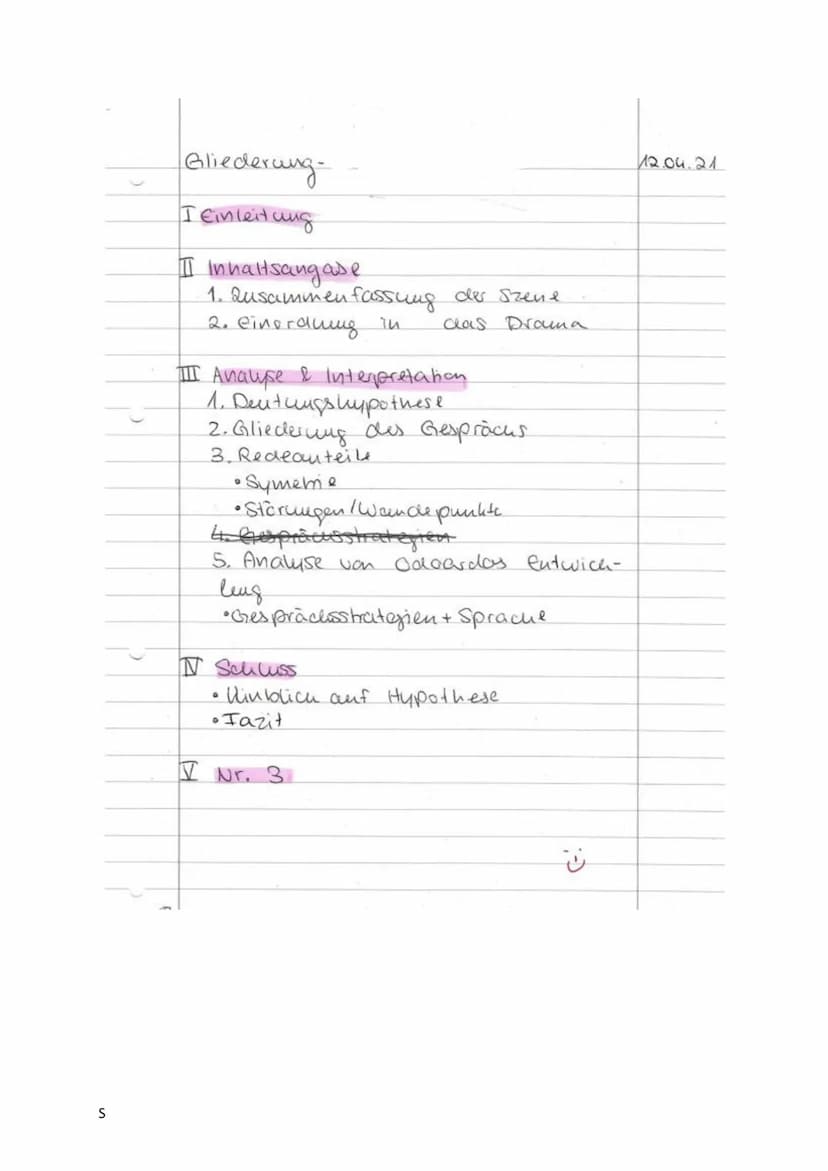 Gliederung-
12.04.21
I Einleitung
II Inhaltsangabe
1. Zusammenfassung der Szene
2. Einordnung in das Drama
III Analyse & Interpretation
1. Deutungshypothese
2. Gliederung des Gesprächs
3. Redeanteile
• Symetrie
• Störungen/Wendepunkte
4. Gesprächsstrategien
5. Analyse von Odoardos Entwick-
lung
• Gesprächsstrategien + Sprache
IV Schluss
• Hinblick auf Hypothese
• Fazit
V Nr. 3
S